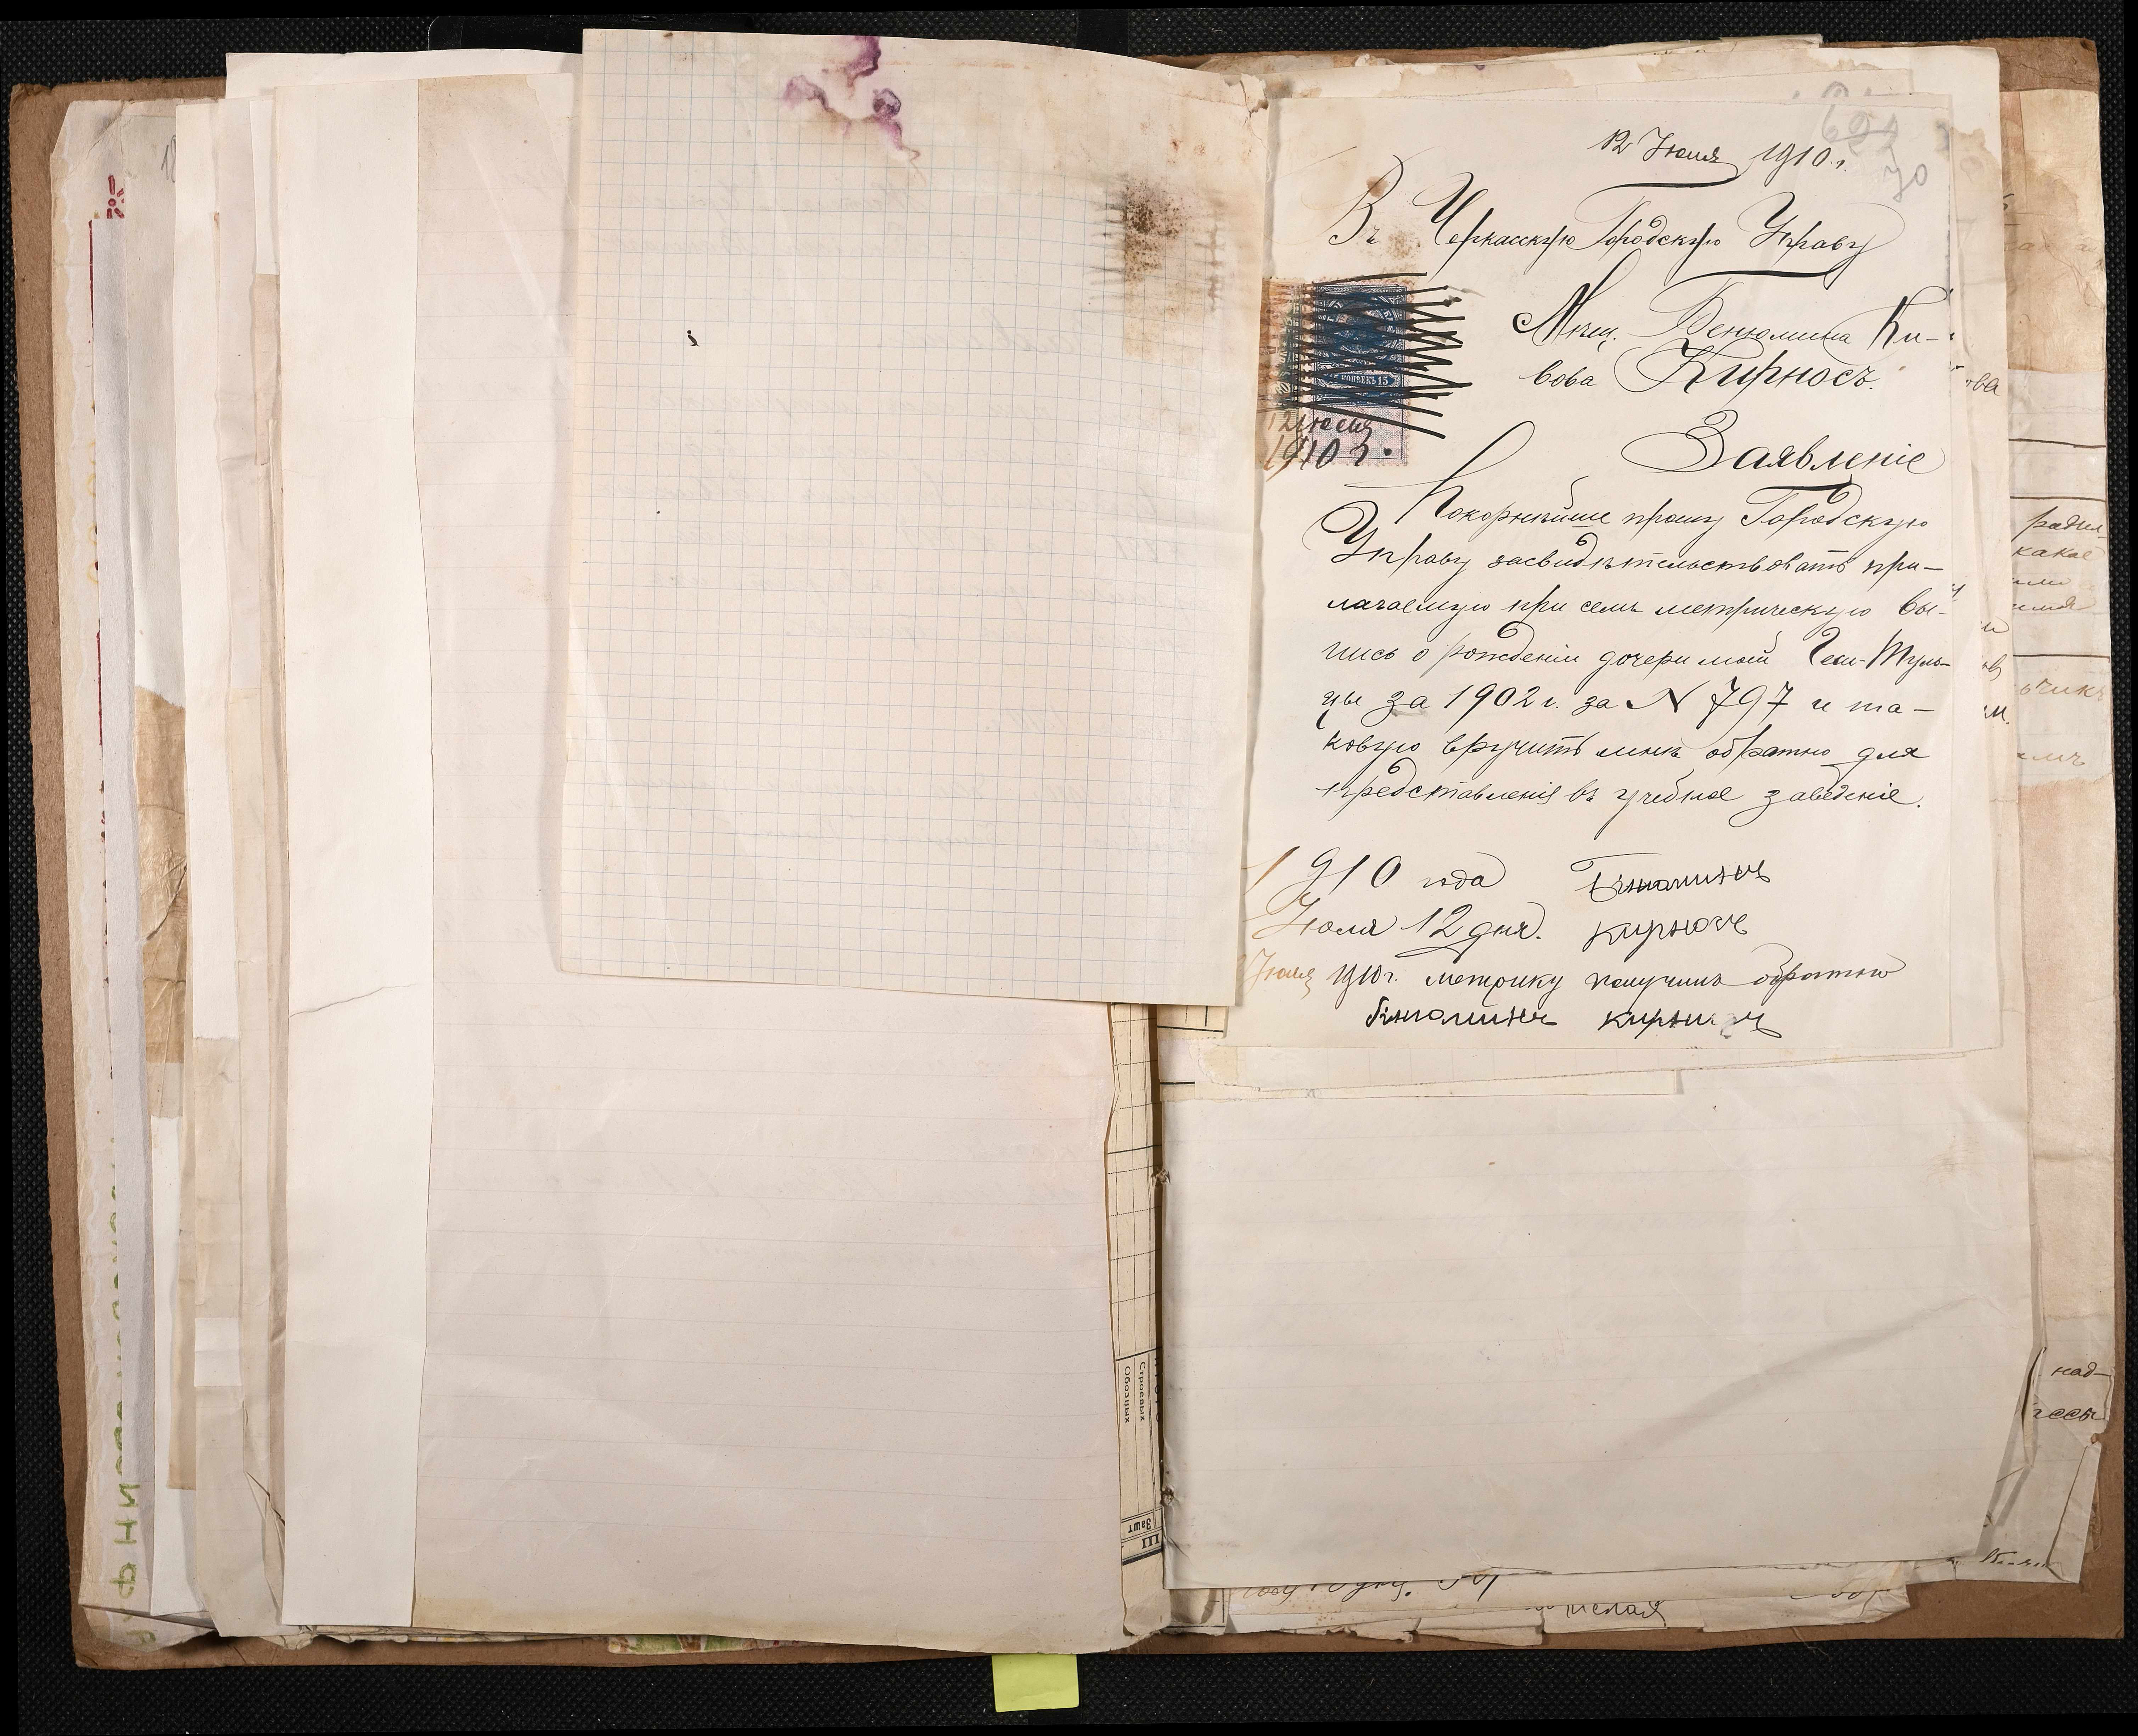 12 Июля 1910 г.
70
Въ Черкасскую Городскую Управу
Мѣщ. Бенюмина Ки-
вова Кирносъ.
КОПѢЕКЪ 15
12 Июля
1910 г.
Заявленіе
Покорнѣйше прошу Городскую
Управу засвидѣтельствовать при-
лагаемую при семъ метрическую вы-
пись о рожденіи дочери моей Геси-Муль-
цы за 1902 г. за N 797 и та-
ковую вручить мнѣ обратно для
представленія въ учебное заведеніе.
1910 года Бенюминъ
Июля 12 дня. Кирносъ
Июля 1910 г. метрику получилъ обратно
Бенюминъ Кирносъ
ова
радил
какое
ьчикъ
над-
Строевыхъ
Обозныхъ
III